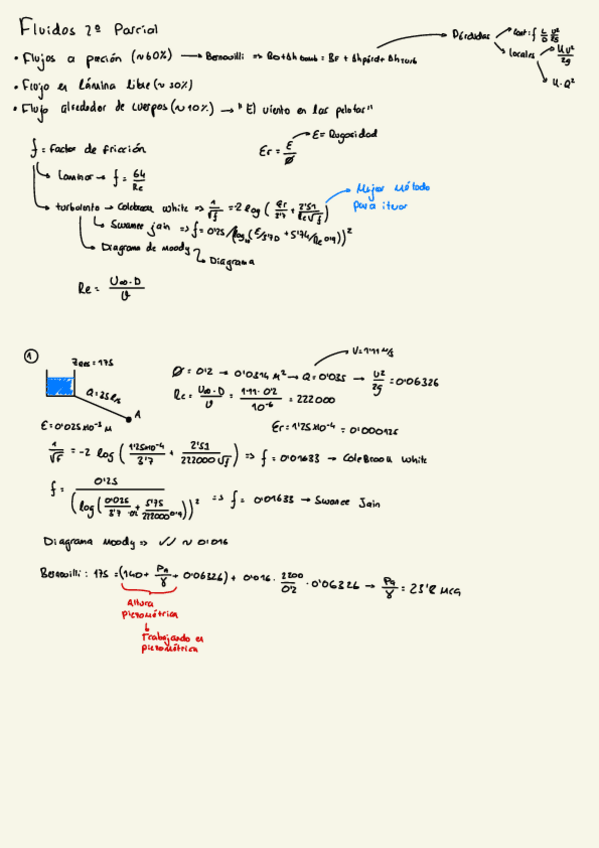 Fluidos 2º Parcial
• Flujos a presión (~60%) → Bernouilli ⇒ B0+Δh bomb = BF + Δh pérd + Δh turb → Pérdidas → Cont: f L/D U²/2g
→ locales → K U²/2g
→ K·Q²
• Flujo en lámina libre (~30%)
• Flujo alrededor de cuerpos (~10%) → "El viento en las pelotas"
f = Factor de fricción
Er = E/Ø → E = Rugosidad
→ Laminar → f = 64/Re
→ turbolento → Colebrook White ⇒ 1/√f = -2 log ( Er/3'7 + 2'51/Re√f ) → Mejor método para iterar
→ Swanee jain ⇒ f = 0'25/(log10(E/3'7D + 5'74/Re^0'9))²
→ Diagrama de Moody
→ Diagrama
Re = U∞·D/ϑ
① Zres = 175
Q = 35 l/s
A
E = 0'025×10⁻³ M
Ø = 0'2 → 0'0314 M² → Q = 0'035 → U²/2g = 0'06326
→ V = 1'11 m/s
Re = U∞·D/ϑ = 1'11·0'2/10⁻⁶ = 222000
Er = 1'25×10⁻⁴ = 0'000125
1/√f = -2 log ( 1'25×10⁻⁴/3'7 + 2'51/222000√f ) ⇒ f = 0'01633 → Colebrook White
f = 0'25/(log(0'025/3'7·0'2 + 5'75/222000^0'9))² ⇒ f = 0'01633 → Swanee Jain
Diagrama Moody ⇒ √√ ~ 0'016
Bernouilli: 175 = (140 + PA/γ + 0'06326) + 0'016 · 2200/0'2 · 0'06326 → PA/γ = 23'8 mca
Altura
piezométrica
↓
Trabajando en
piezométrica